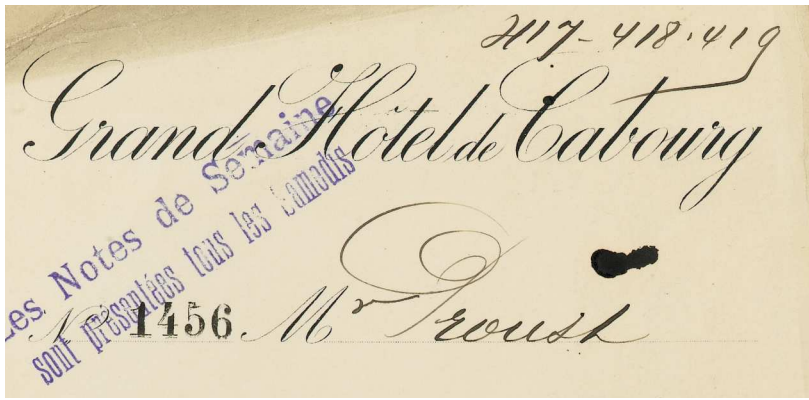 417-418.419
Grand Hôtel de Cabourg
Les Notes de Semaine
sont présentées tous les Samedis
No 1456 Mr Proust